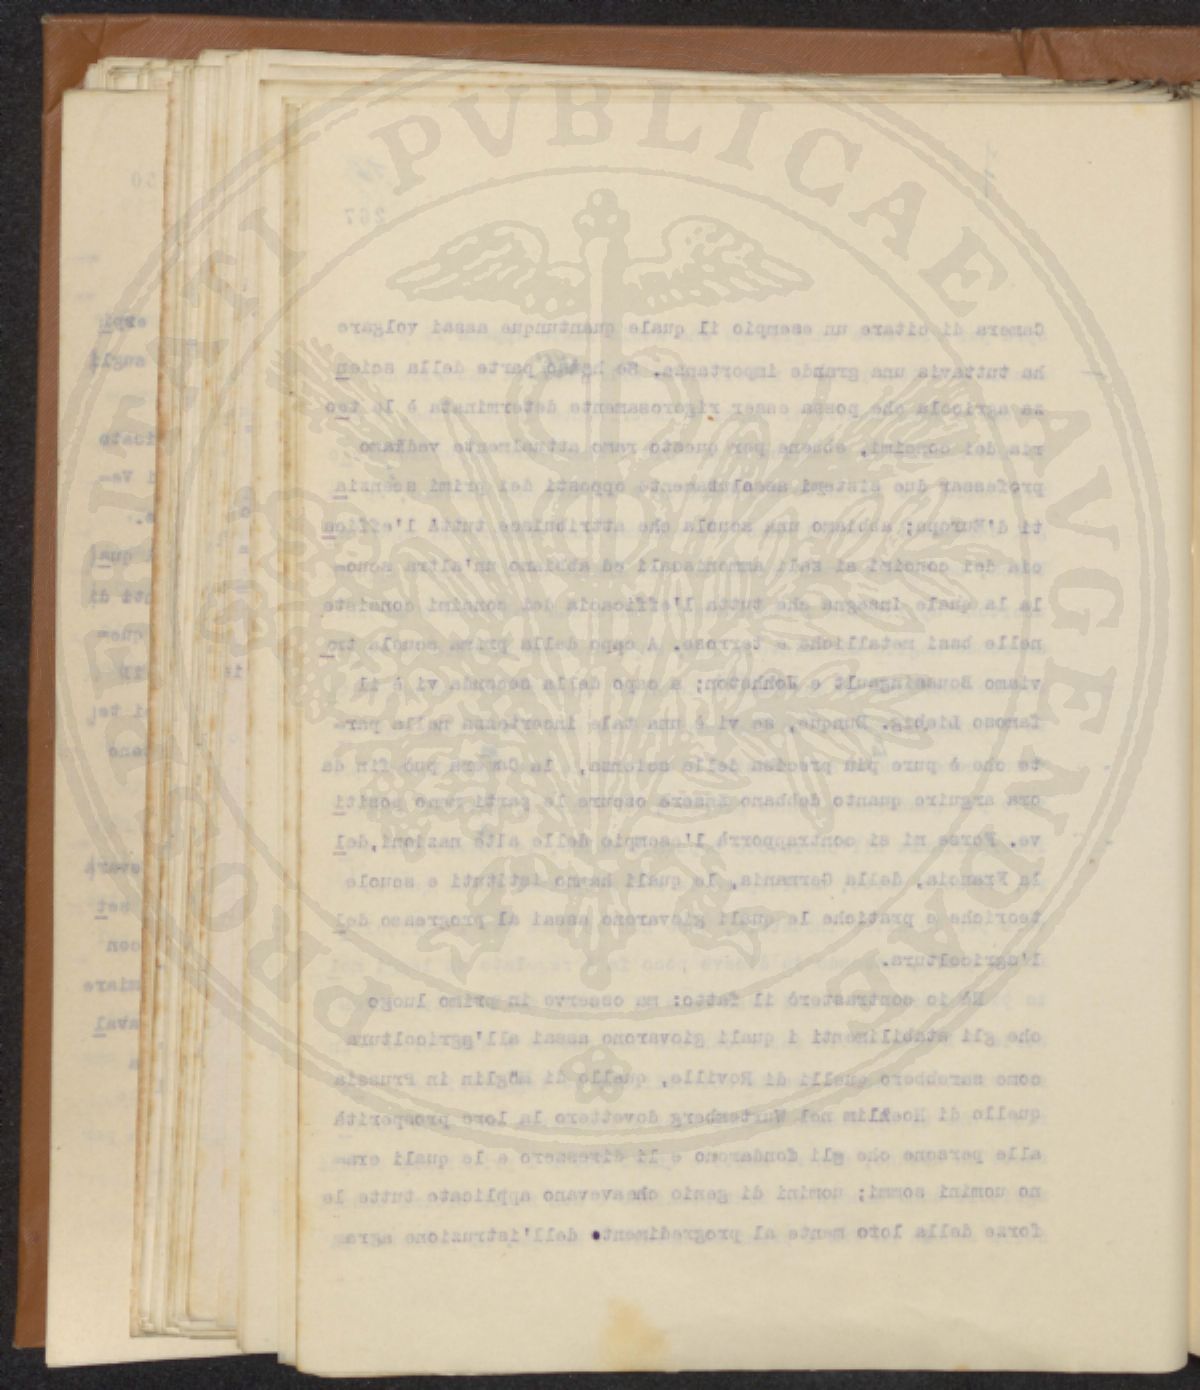 PROSPERITATI PVBLICAE AVGENDAE
267
Camera di citare un esempio il quale quantunque assai volgare
ha tuttavia una grande importanza. Se havvi parte della scien
za agricola che possa esser rigorosamente determinata è la teo
ria dei concimi, ebbene per questo ramo attualmente vediamo
professar due sistemi assolutamente opposti dei primi scenzia
ti d'Europa; abbiamo una scuola che attribuisce tutta l'effica
cia dei concimi ai sali ammoniacali ed abbiamo un'altra scuo-
la la quale insegna che tutta l'efficacia dei concimi consiste
nelle basi metalliche e terrose. A capo della prima scuola tro
viamo Boussingault e Johhston; a capo della seconda vi è il
famoso Liebig. Dunque, se vi è una tale incertezza nella par-
te che è pure più precisa della scienza, la Camera può fin da
ora arguire quanto debbano essere oscure le parti meno positi
ve. Forse mi si contrapporrà l'esempio delle alte nazioni, del
la Francia, della Germania, le quali hanno istituti e scuole
teoriche e pratiche le quali giovarono assai al progresso del
l'agricoltura.
Nè io contrasterò il fatto: ma osservo in primo luogo
che gli stabilimenti i quali giovarono assai all'agricoltura
come sarebbero quelli di Roville, quello di Möglin in Prussia
quello di Hoenlim nel Wurtemberg dovettero la loro prosperità
alle persone che gli fondarono e li diressero e le quali era-
no uomini sommi; uomini di genio cheavevano applicate tutte le
forze della loro mente al progredimento dell'istruzione agra